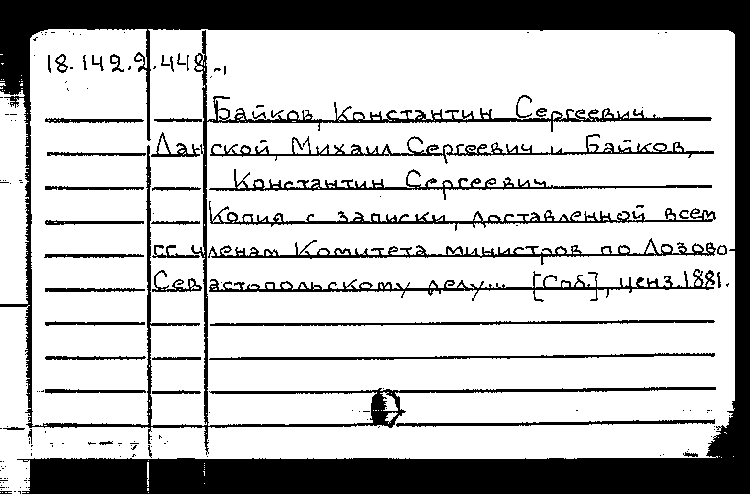 18.142.2.448
Байков, Константин Сергеевич.
Ланской, Михаил Сергеевич и Байков,
Константин Сергеевич.
Копия с записки, доставленной всем
гг. членам Комитета министров по Лозово-
Севастопольскому делу... [Спб.], ценз. 1881.